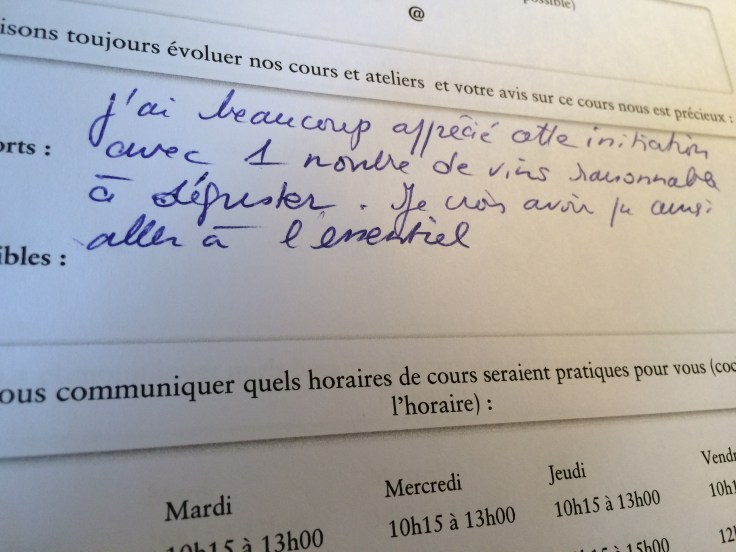 @
isons toujours évoluer nos cours et ateliers et votre avis sur ce cours nous est précieux :
j'ai beaucoup apprécié cette initiation
orts :
avec 1 nombre de vins raisonnable
à déguster. Je crois avoir pu ainsi
aller à l'essentiel
ibles :
ous communiquer quels horaires de cours seraient pratiques pour vous (coc
l'horaire) :
Mardi Mercredi Jeudi Vendr
10h15 à 13h00 10h15 à 13h00 10h15 à 13h00 10h1
15h00 12h